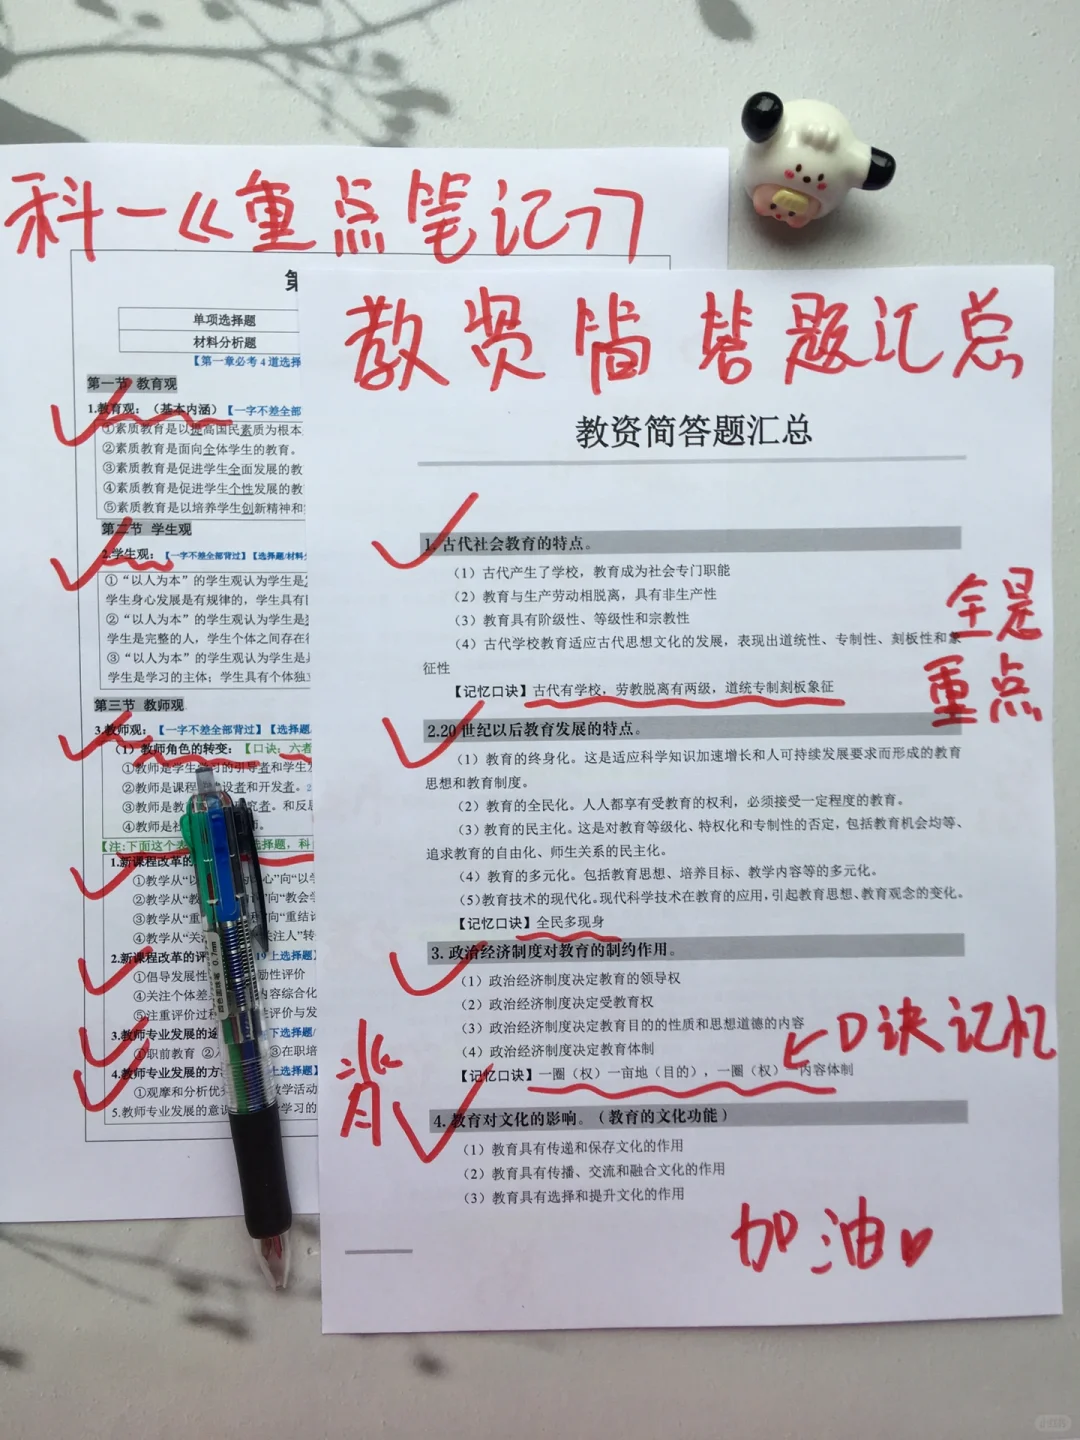 科一《重点笔记》
第
单项选择题
材料分析题
【第一章必考4道选择
第一节 教育观
1.教育观：（基本内涵）【一字不差全部
①素质教育是以提高国民素质为根本
②素质教育是面向全体学生的教育。
③素质教育是促进学生全面发展的教
④素质教育是促进学生个性发展的教
⑤素质教育是以培养学生创新精神和
第二节 学生观
2.学生观：【一字不差全部背过】【选择题/材料
①“以人为本”的学生观认为学生是
学生身心发展是有规律的，学生具有
②“以人为本”的学生观认为学生是
学生是完整的人，学生个体之间存在
③“以人为本”的学生观认为学生是
学生是学习的主体；学生具有个体独立
第三节 教师观
3.教师观：【一字不差全部背过】【选择题
（1）教师角色的转变：【口诀：六者
①教师是学生 的引导者和学生
②教师是课程 设者和开发者。
③教师是教 究者。和反
④教师是社
【注:下面这个表 选择题，科
1.新课程改革的
①教学从“以 心”向“以学
②教学从“教 ”向“教会学
③教学从“重 ”向“重结
④教学从“关 关注人”转
2.新课程改革的评 上选择题】
①倡导发展性 励性评价
④关注个体差 内容综合化
⑤注重评价过 评价与发
3.教师专业发展的途 下选择题
①职前教育 ② ③在职培
4.教师专业发展的方 上选择题】
①观摩和分析优 教学活动
5.教师专业发展的意识 学习的
教资简答题汇总
教资简答题汇总
1.古代社会教育的特点。
（1）古代产生了学校，教育成为社会专门职能
（2）教育与生产劳动相脱离，具有非生产性
（3）教育具有阶级性、等级性和宗教性
（4）古代学校教育适应古代思想文化的发展，表现出道统性、专制性、刻板性和象
征性
【记忆口诀】古代有学校，劳教脱离有两级，道统专制刻板象征
全是
重点
2.20 世纪以后教育发展的特点。
（1）教育的终身化。这是适应科学知识加速增长和人可持续发展要求而形成的教育
思想和教育制度。
（2）教育的全民化。人人都享有受教育的权利，必须接受一定程度的教育。
（3）教育的民主化。这是对教育等级化、特权化和专制性的否定，包括教育机会均等、
追求教育的自由化、师生关系的民主化。
（4）教育的多元化。包括教育思想、培养目标、教学内容等的多元化。
（5）教育技术的现代化。现代科学技术在教育的应用，引起教育思想、教育观念的变化。
【记忆口诀】全民多现身
3. 政治经济制度对教育的制约作用。
（1）政治经济制度决定教育的领导权
（2）政治经济制度决定受教育权
（3）政治经济制度决定教育目的的性质和思想道德的内容
（4）政治经济制度决定教育体制
【记忆口诀】一圈（权）一亩地（目的），一圈（权） 内容体制
口诀记忆
背
4. 教育对文化的影响。（教育的文化功能）
（1）教育具有传递和保存文化的作用
（2）教育具有传播、交流和融合文化的作用
（3）教育具有选择和提升文化的作用
加油